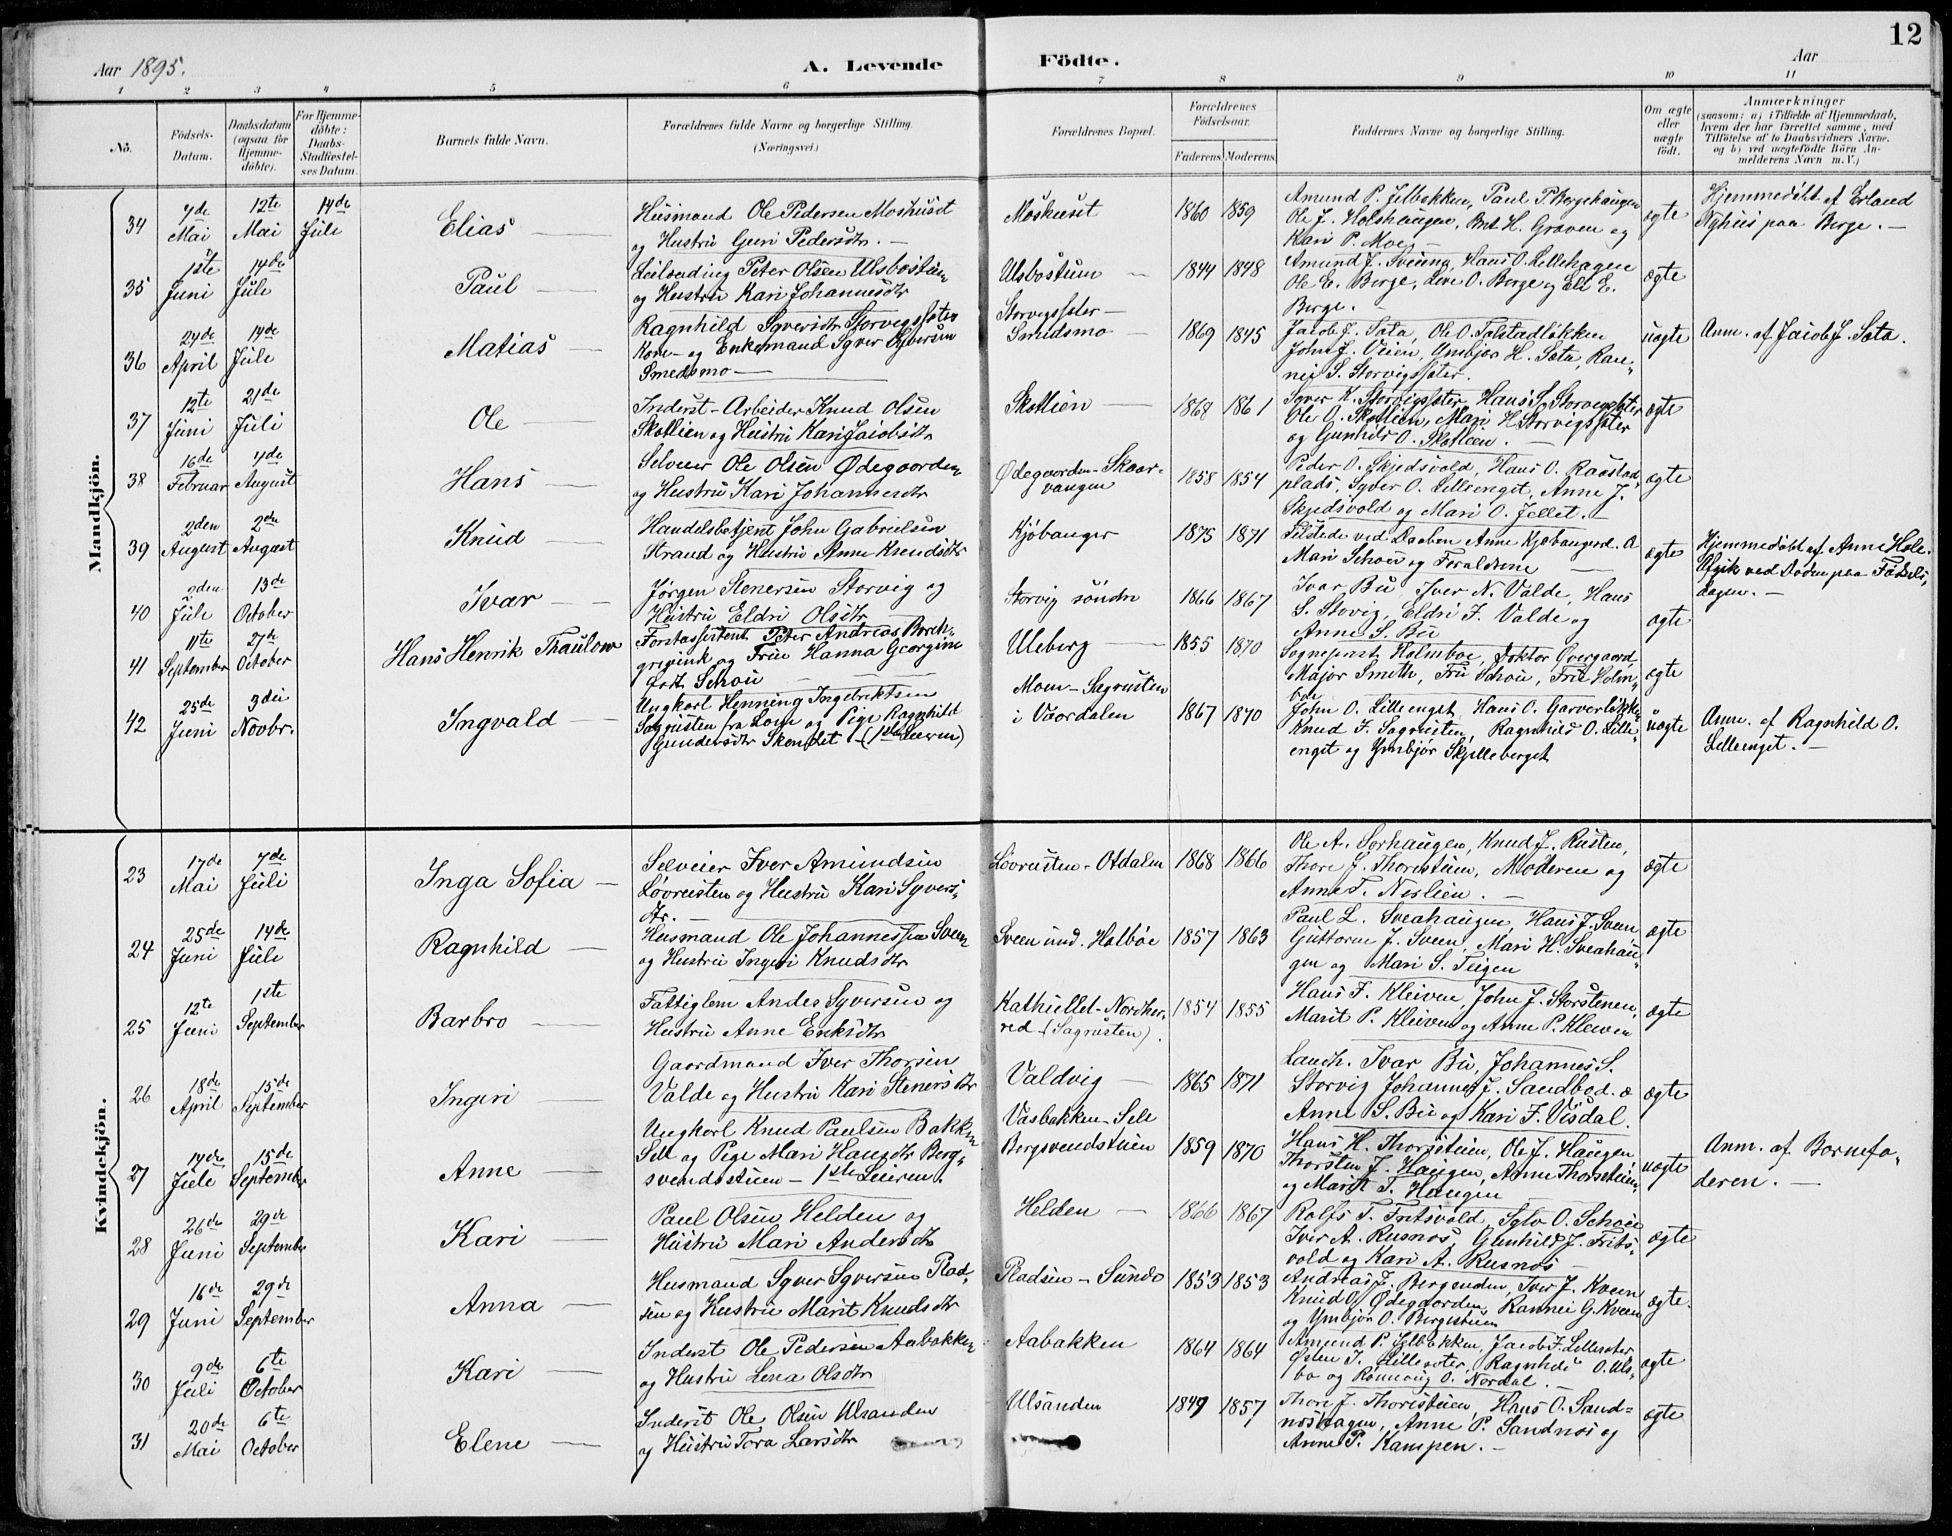 12
Aar 1895.
A. Levende Födte.
Aar
1 2 3 4 5 6 7 8 9 10 11
No.
Födsels-Datum.
Daabsdatum (ogsaa for Hjemme-döbte).
For Hjemme-döbte: Daabs-Stadfæstel-ses Datum.
Barnets fulde Navn.
Forældrenes fulde Navne og borgerlige Stilling.
(Næringsvei.)
Forældrenes Bopæl.
Forældrenes Födselsaar.
Faderens. Moderens.
Faddernes Navne og borgerlige Stilling.
Om ægte eller uægte födt.
Anmærkninger
(saasom: a) i Tilfælde af Hjemmedaab, hvem der har forrettet samme, med Tilföielse af to Daabsvidners Navne, og b) ved uægtefödte Börn Anmelderens Navn m. V.)
Mandkjön.
34 7de Mai 12te Mai 14de Juli
Elias
Husmand Ole Pedersen Moshuset
og Hustru Guri Pedersdtr.
Moshuset 1860 1859
Amund P. Jelbakken, Paul P. Borgehaugen
Ole J. Holshaugen, Brit H. Graven og
Kari P. Moeg
ægte
Hjemmedöbt af Erland
Nyhus paa Berge.
35 1ste Juni 14de Juli
Paul
Leilending Peter Olsen Ulsbostuen
og Hustru Kari Johannesdtr
Ulsbostuen 1844 1848
Amund J. Sveung, Hans O. Lillehagen
Ole E. Berge, Live O. Berge og Eli E.
Berge.
ægte
36 24de April 14de Juli
Matias
Ragnhild Syversdtr Storvigssæter
Kone og Enkemand Syver Syversen
Smedsmo
Storvigssæter
Smedsmo 1869 1845
Jacob J. Sata, Ole O. Tolstadlökken
John J. Veien, Ambjør H. Sata, Ran-
nei S. Storvigssæter.
uægte
Anm. af Jacob J. Sata.
37 12te Juni 21de Juli
Ole
Inderst-Arbeider Knud Olsen
Skotlien og Hustru Kari Jacobsdtr
Skotlien 1868 1861
Syver K. Storvigssæter, Hans S. Storvigssæter
Ole O. Skotlien, Mari H. Storvigssæter
og Gunhild O. Skotlien.
ægte
38 16de Februar 4de August
Hans
Selveier Ole Olsen Ødegaarden
og Hustru Kari Johannesdtr
Ødegaarden-Skaar-
vangen 1858 1854
Peder O. Skjedsvold, Hans O. Raastad-
plads, Syver O. Lilleenget, Anne J.
Skjedsvold og Mari O. Jellet.
ægte
39 2den August 2den August
Knud
Handelsbetjent John Gabrielsen
Strand og Hustru Anne Knudsdtr
Kjöbanger 1875 1871
Tilstede ved Daaben Anne Kjöbangerd. a
Mari Schou og Forældrene
ægte
Hjemmedöbt af Anne Hole.
Afgik ved Döden paa Födsels-
dagen.
40 2den Juli 13de October
Ivar
Jörgen Stenersen Storvig og
Hustru Eldri Olsdtr
Storvig söndre 1866 1867
Ivar Bu, Iver N. Valde, Hans
S. Storvig, Eldri F. Valde og
Anne S. Bu
ægte
41 11te September 27de October
Hans Henrik Thaulow
Forstassistent Peter Andreas Borch-
grevink og Frue Hanna Georgine
födt Schou
Uleberg 1855 1870
Sogneprest Holmboe, Doktor Overgaard
Major Smith, Fru Schou, Fru Holm-
boe
ægte
42 25de Juni 3die Novbr.
Ingvald
Ungkarl Henning Ingebrektsen
Sagrusten fra Lom og Pige Ragnhild
Gundersdtr Skondet (1ste Leierm)
Moen-Sagrusten
i Vaardalen 1867 1870
John O. Lilleenget, Hans O. Garverlökken
Knud F. Sagrusten, Ragnhild O. Lille-
enget og Ymbjör Skjelleberget
uægte
Anm. af Ragnhild O.
Lilleenget.
Kvindekjön.
23 17de Mai 7de Juli
Inga Sofia
Selveier Iver Amundsen
Lövrusten og Hustru Kari Syvers-
dtr.
Lövrusten-Otdalen 1868 1866
Ole A. Sorhaugen, Knud J. Rusten,
Thore J. Thorestuen, Moderen og
Anne T. Nerlien.
ægte
24 25de Juni 14de Juli
Ragnhild
Husmand Ole Johannessen Sveen
og Hustru Ingeri Knudsdtr
Sveen und. Holböe 1857 1863
Paul L. Sveahaugen, Hans J. Sveen
Guttorm J. Sveen, Mari H. Sveahau-
gen og Mari S. Teigen
ægte
25 12te Juni 1ste September
Barbro
Fattiglem Anders Syversen og
Hustru Anne Eriksdtr
Kathullet-Nordher-
red (Sagrusten). 1854 1855
Hans F. Kleiven, John J. Storstenen,
Marit P. Kleiven og Anne P. Kleiven
ægte
26 18de April 15de September
Ingeri
Gaardmand Iver Thorsen
Valde og Hustru Kari Stenersdtr
Valdvig 1865 1871
Landh. Ivar Bu, Johannes S.
Storvig Johannes J. Sandbod. a
Anne S. Bu og Kari F. Visdal.
ægte
27 14de Juli 15de September
Anne
Ungkarl Knud Paulsen Bakken
Sell og Pige Mari Hansdtr Berg-
svendstuen - 1ste Leierm.
Vasbakken-Sell
Bergsvendstuen 1859 1870
Hans H. Thorstuen, Ole J. Haugen,
Thorsten J. Haugen, Anne Thorsstuen,
og Marit T. Haugen
uægte
Anm. af Barnefa-
deren.
28 26de Juni 29de September
Kari
Paul Olsen Helden og
Hustru Mari Andersdtr
Helden 1866 1867
Rolfs T. Fritsvold, Sylv. O. Schou
Iver A. Rusnes Gunhild J. Frits-
vold og Kari A. Rusnes
ægte
29 16de Juni 29de September
Anna
Husmand Syver Syversen Plad-
sen og Hustru Marit Knudsdtr
Pladsen-Sundo 1853 1853
Andreas J. Bergenden, Iver J. Kveen
Knud O. Ødegaarden, Rannei G. Kveen
og Ymbjör O. Bergestuen
ægte.
30 9de Juli 6te October
Kari
Inderst Ole Pedersen Aabakken
og Hustru Lena Olsdtr
Aabakken 1864 1864
Amund P. Jelbakken, Jacob F. Lillesæter,
Østen J. Lillesæter, Ragnhild O. Uls-
bo og Rönnaug O. Nordal.
ægte
31 20de Mai 6te October
Elene
Inderst Ole Olsen Ulsanden
og Hustru Tora Larsdtr
Ulsanden 1849 1857
Thore J. Thorestuen, Hans O. Sand-
neshagen, Anne P. Sandnes og
Anne P. Kampen.
ægte